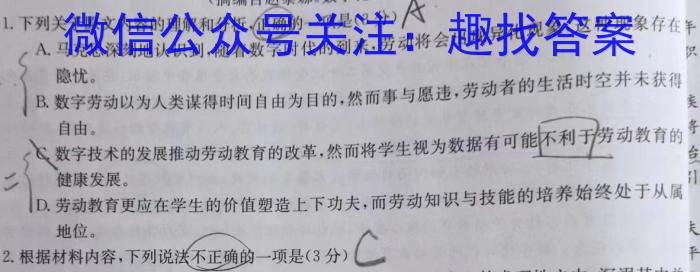 (摘编自
1.下列关 的理解和分析,正确的一项是(3分) A
微信公众号关注:趣找答案
A.马克思深刻地认识到,随着数字时代的到来,劳动将会 现象 象存在
隐忧。
B.数字劳动以为人类谋得时间自由为目的,然而事与愿违,劳动者的生活时空并未获得
自由。
C.数字技术的发展推动劳动教育的改革,然而将学生视为数据有可能不利于劳动教育的
健康发展。
D.劳动教育更应在学生的价值塑造上下功夫,而劳动知识与技能的培养始终处于从属
地位。
2.根据材料内容,下列说法不正确的一项是(3分) C